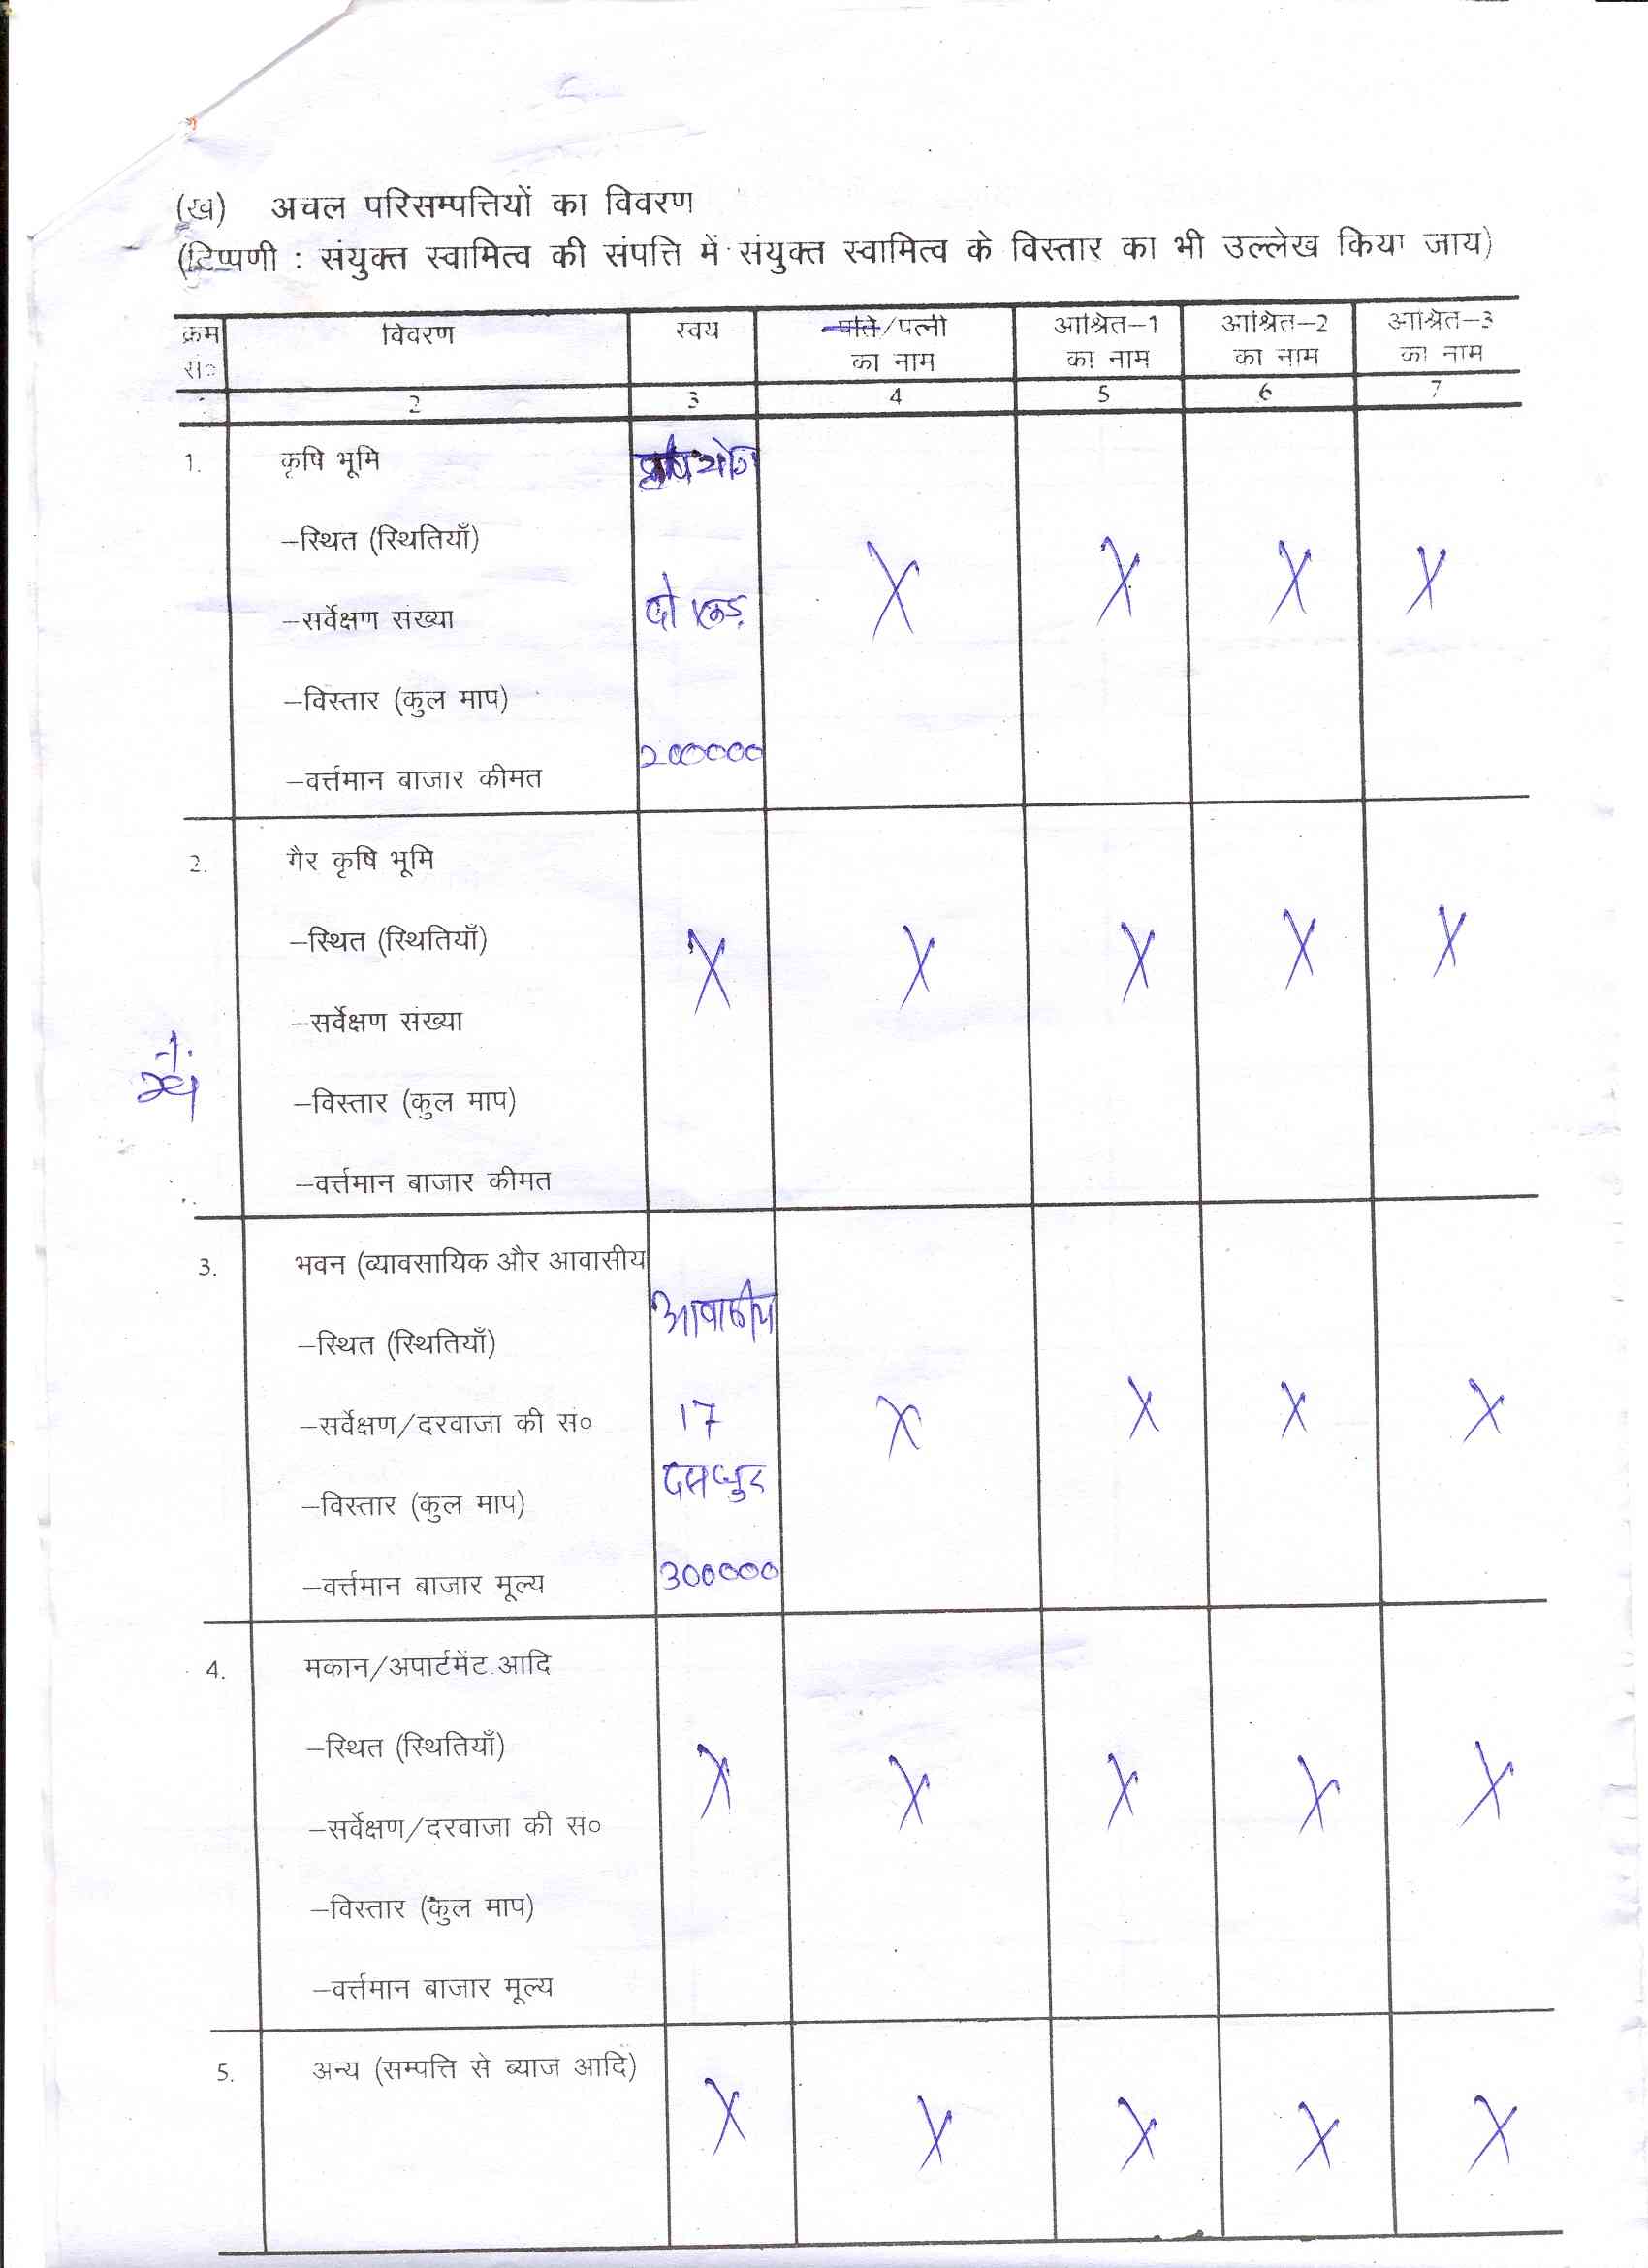 (ख) अचल परिसम्पत्तियों का विवरण
(टिप्पणी : संयुक्त स्वामित्व की संपत्ति में संयुक्त स्वामित्व के विस्तार का भी उल्लेख किया जाय)
क्रम सं० विवरण स्वयं पति/पत्नी का नाम आश्रित-1 का नाम आश्रित-2 का नाम आश्रित-3 का नाम
2 3 4 5 6 7
1. कृषि भूमि
-स्थित (स्थितियाँ) X X X X
-सर्वेक्षण संख्या दो
-विस्तार (कुल माप)
-वर्त्तमान बाजार कीमत 200000
2. गैर कृषि भूमि
-स्थित (स्थितियाँ) X X X X X
-सर्वेक्षण संख्या
-विस्तार (कुल माप)
-वर्त्तमान बाजार कीमत
3. भवन (व्यावसायिक और आवासीय
-स्थित (स्थितियाँ) आवासीय
-सर्वेक्षण/दरवाजा की सं० 17 X X X X
-विस्तार (कुल माप)
-वर्त्तमान बाजार मूल्य 300000
4. मकान/अपार्टमेंट आदि
-स्थित (स्थितियाँ) X X X X X
-सर्वेक्षण/दरवाजा की सं०
-विस्तार (कुल माप)
-वर्त्तमान बाजार मूल्य
5. अन्य (सम्पत्ति से ब्याज आदि) X X X X X